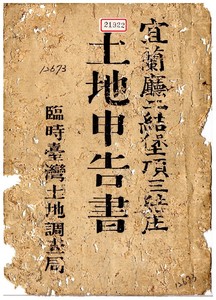 21932
宜蘭廳二結堡頂三結庄
土地申告書
臨時臺灣土地調查局
12673
12673